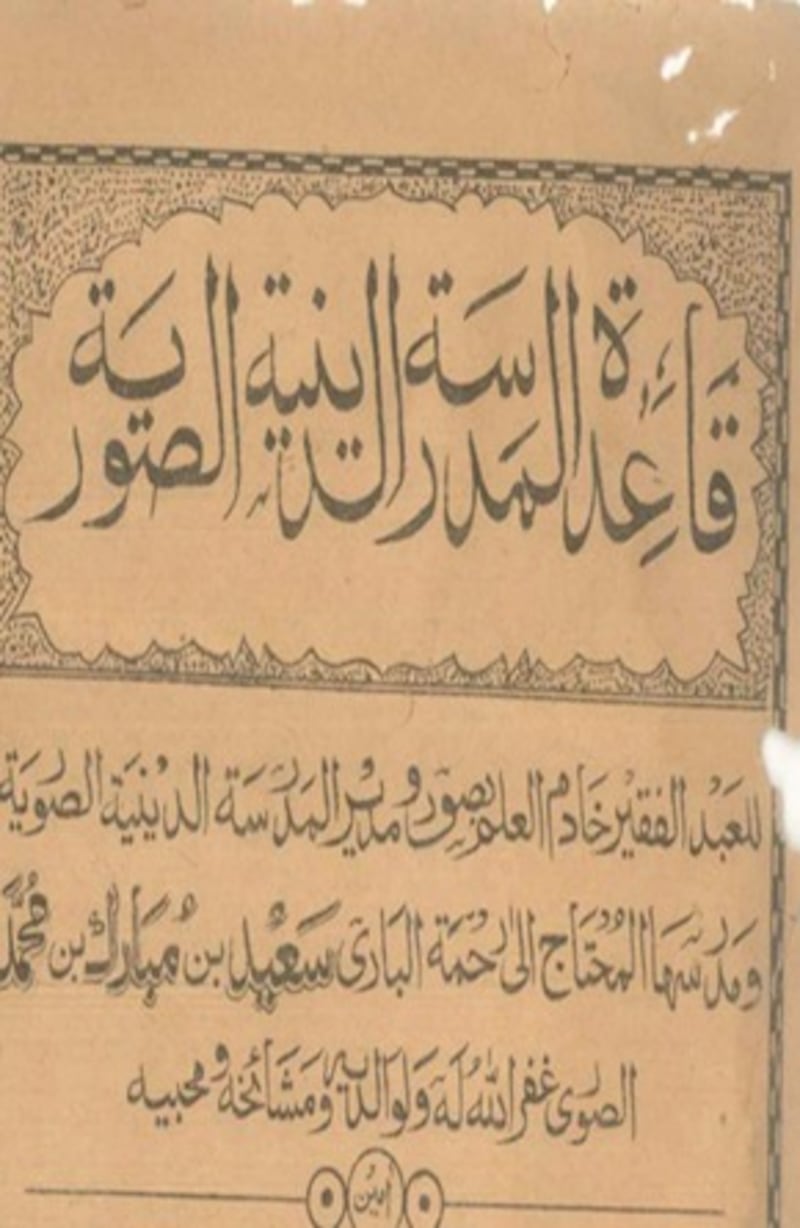 قَاعِدَةُ المَدرسَة الدينية الصّورية
للعَبْد الفقيْر خَادم العلم بِصوْر ومديْر المَدْرسَة الديْنيَة الصُوريَة
ومَدرّسهَا المُحْتَاج الىٰ رحْمَة البَارئ سَعيْد بن مُبَارك بن مُحمَّد
الصُورى غفر اللّٰه لَهٗ وَلوَالديه ومَشَائخهٖ ومحبيه
اٰمين